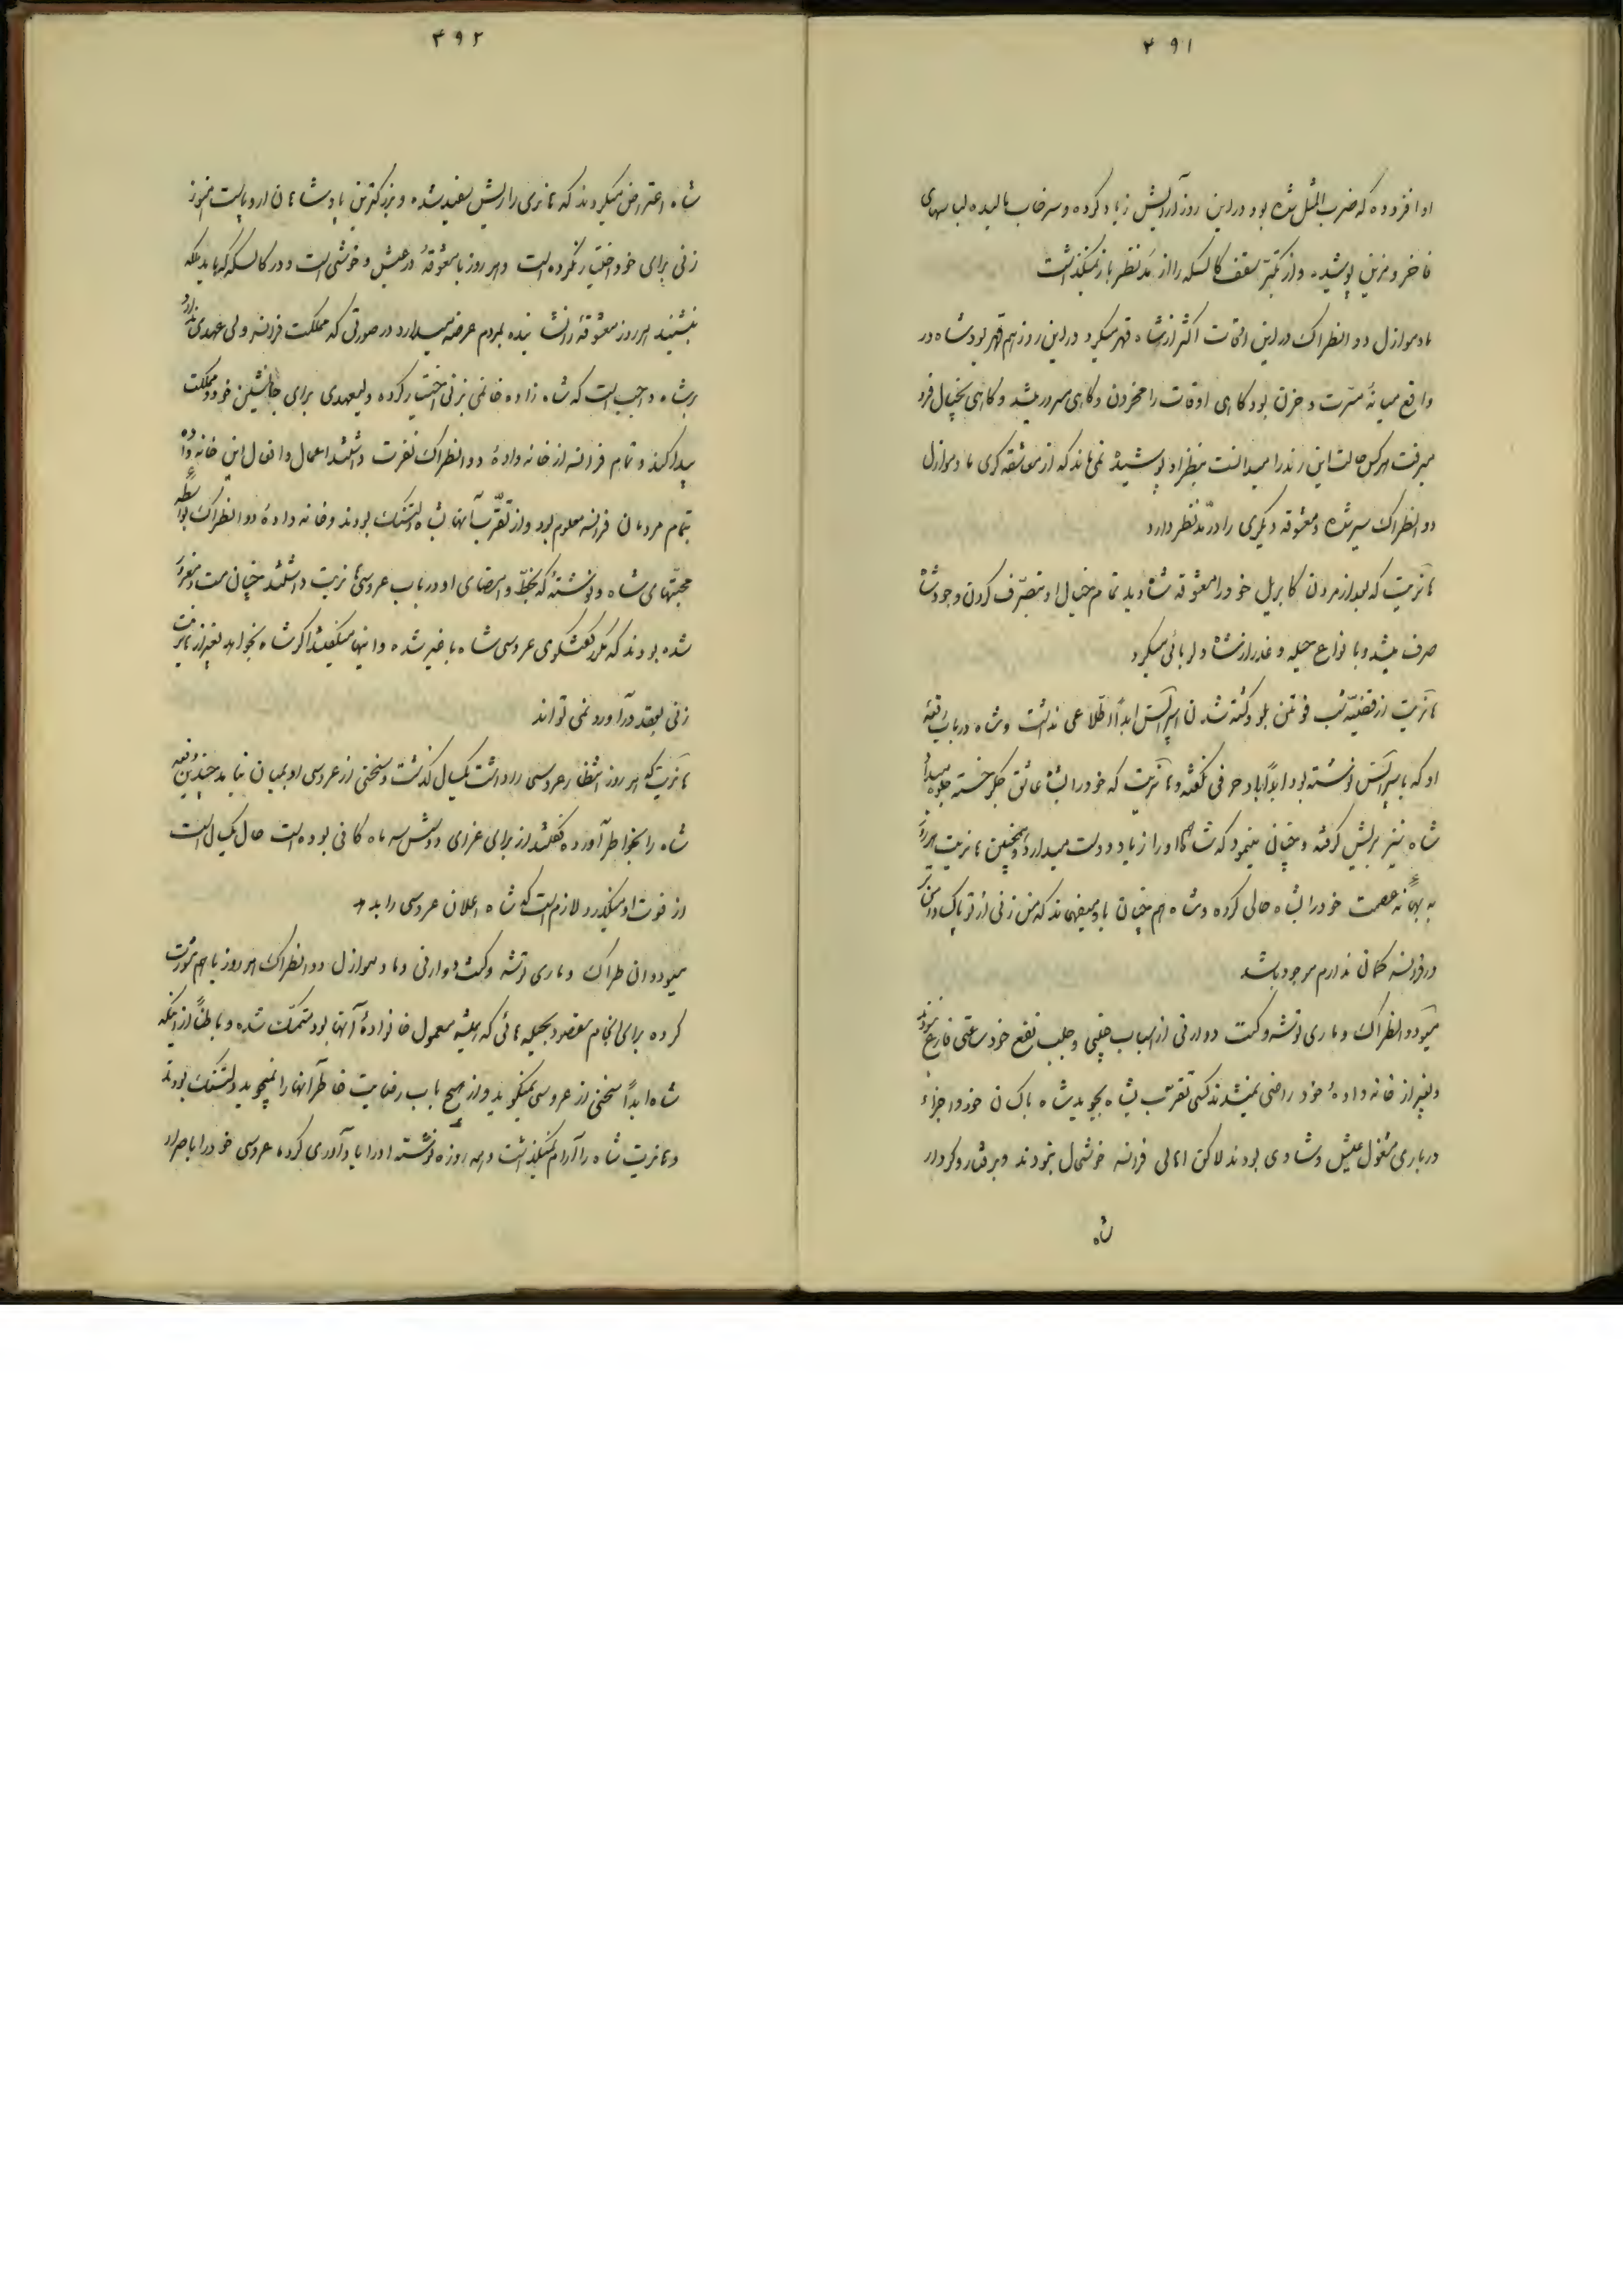 ۳۹۱
او افزوده که ضرب المثل شده بود و در این روز آرایش زیاد کرده و سرخاب مالیده لباسهای
فاخر و مزین پوشیده و از تکبر سقف کالسکه را از مد نظر باز نمیگذاشت
مادموازل دو انطراک در این اوقات اکثر از شاه قهر میکرد و در این روز هم قهر بود شاه در
واقع میانهٔ مسرت و حزن بود گاهی اوقات را محزون و گاهی مسرور میشد و گاهی بخیال فرو
میرفت هر کس حالت این رند را میدانست بنظر او پوشیده نمی‌ماند که از معاشقه کری مادموازل
دو انطراک سیر شده و معشوقه دیگری را در مد نظر دارد
هانریت که بعد از مردن کابریل خود را معشوقه شاه دید تمام خیال او متصرف کردن وجود شاه
صرف میشد و با انواع حیله و غدر از شاه دلربائی میکرد
هانریت از قضیه شب فونتن بلو و کشته شدن اسپرالتس ابداً اطلاعی نداشت و شاه در باب رقعهٔ
او که باسپرالتس نوشته بود ابداً باو حرفی نگفته و هانریت که خود را بشاه عاشق جگر خسته جلوه میداد
شاه نیز بریش گرفته و چنان مینمود که شاه هم او را زیاد دوست میدارد و همچنین هانریت هر روز
به بهانهٔ عصمت خود را بشاه حالی کرده و شاه هم چنان باو میفهماند که من زنی از تو پاک دامن تر
در فرانسه گمان ندارم موجود باشد
مسیو دو انطراک و ماری توشه و کنت دوارنی از اسباب چینی و جلب نفع خود ساعتی فارغ نبودند
و بغیر از خانه وادهٔ خود راضی نمیشدند کسی تقرب بشاه بجوید شاه با کسان خود و اجزاء
درباری مشغول عیش و شادی بودند لاکن اهالی فرانسه خوشحال نبودند و برفتار و کردار
شاه
۳۹۲
شاه اعتراض میکردند که هانری را ریش سفید شده و بزرگترین پادشاهان اروپاست هنوز
زنی برای خود اختیار نکرده است و هر روز با معشوقهٔ در عیش و خوشی است و در کالسکه که باید ملکه
بنشیند هر روز معشوقه را نشانیده بمردم عرضه میدارد در صورتی که مملکت فرانسه ولی عهدی ندارد
بر شاه واجب است که شاه زاده خانمی بزنی اختیار کرده ولیعهدی برای جانشین خود و مملکت
پیدا کند و تمام فرانسه از خانه وادهٔ دو انطراک نفرت داشتند اعمال و افعال این خانه واده
بتمام مردمان فرانسه معلوم بود و از تقرب آنها بشاه دلتنگ بودند و خانه وادهٔ دو انطراک بواسطهٔ
محبتهای شاه و نوشتهٔ که بخط و امضای او در باب عروسی هانریت داشتند چنان مست و مغرور
شده بودند که مکرر گفتگوی عروسی شاه با غیر شده و اینها میگفتند اگر شاه بخواهد بغیر از هانریت
زنی بعقد در آورد نمی تواند
هانریت که هر روز انتظار عروسی را داشت یکسال گذشت و سخنی از عروسی او بمیان نیامد چندین دفعه
شاه را بخاطر آورده گفتند از برای عزای دوشس سه ماه کافی بوده است حال یک سال است
از فوت او میگذرد لازم است که شاه اعلان عروسی را بدهد
مسیو دوان طراک و ماری توشه و کنت دوارنی و مادموازل دو انطراک هر روز با هم مشورت
کرده برای انجام مقصود بحیله هائی که همیشه معمول خانوادهٔ آنها بود متمسک شده و باطناً از اینکه
شاه ابداً سخنی از عروسی نمیگوید و از هیچ باب رضایت خاطر آنها را نمیجوید دلتنگ بودند
و هانریت شاه را آرام نمیگذاشت و همه روزه نوشته او را یادآوری کرده عروسی خود را باصرار